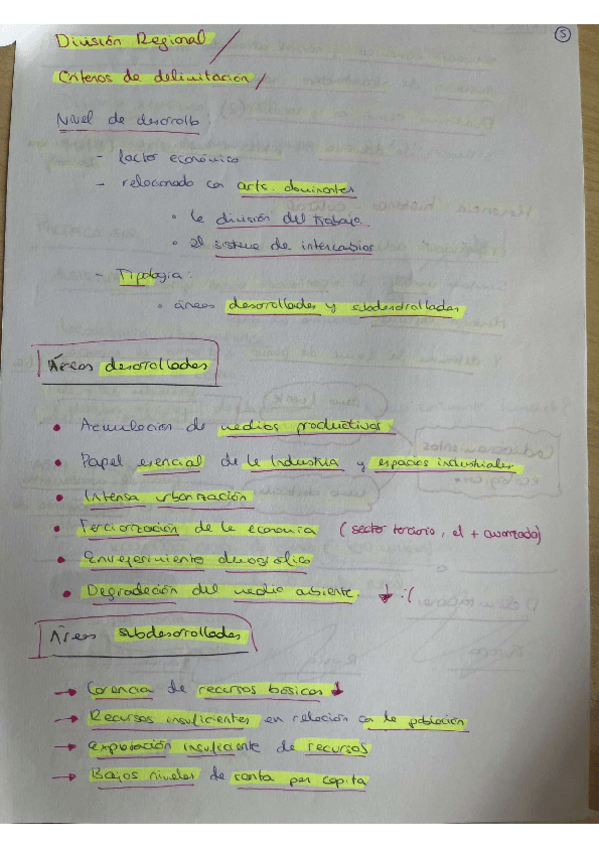 5
División Regional /
Criterios de delimitación /
Nivel de desarrollo
- factor económico
- relacionado con arts. dominantes
• la división del trabajo
• el sistema de intercambios
- Tipología:
• áreas desarolladas y subdesarolladas
Áreas desarolladas
• Acumulación de medios productivos
• Papel esencial de la Industria y espacios industriales
• Intensa urbanización
• Terciarización de la economía (sector terciario, el + avanzado)
• Envejecimiento demográfico
• Degradación del medio ambiente ↓ :(
Áreas subdesarolladas
→ Carencia de recursos básicos ↓
→ Recursos insuficientes en relación con la población
→ explotación insuficiente de recursos
→ Bajos niveles de renta per capita